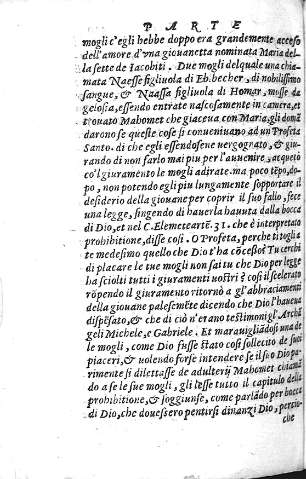 PARTE
mogli c'egli hebbe doppo era grandemente acceso
dell'amore d'vna giouanetta nominata Maria del-
la sette de Iacobiti. Due mogli delquale una chia-
mata Naesse figliuola di Eb.becher, di nobilissimo
sangue, & Naassa figliuola di Homar, mosse da
gelosia, essendo entrate nascosamente in camera, et
trouato Mahomet che giaceua con Maria, gli domã
darono se queste cose si conueniuano ad un Profeta
Santo. di che egli essendosene uergognato, & giu-
rando di non farlo mai piu per l'auuenire, acquetò
co'l giuramento le mogli adirate. ma poco tẽpo, do-
po, non potendo egli piu lungamente sopportare il
desiderio della giouane per coprir il suo fallo, fece
una legge, fingendo di hauerla hauuta dalla bocca
di Dio, et nel C. Elemetearte. 31. che è interpretato
prohibitione, disse cosi. O Profeta, perche ti toglia
te medesimo quello che Dio t'ha cõcesso? Tu cerchi
di placare le tue mogli non sai tu che Dio per legge
ha sciolti tutti i giuramenti uostri? così il scelerato
rõpendo il giuramento vitornò a gl'abbraciamenti
della giouane palesemẽte dicendo che Dio l'haueua
dispẽsato, & che di ciò n'erano testimonij gl'Archã
geli Michele, e Gabriele. Et marauigliãdosi una de
le mogli, come Dio fusse stato così sollecito de suoi
piaceri, & uolendo forse intendere se il suo Dio pa-
rimente si dilettasse de adulterij Mahomet chiamã
do a se le sue mogli, gli lesse tutto il capitulo della
prohibitione, & soggiunse, come parlãdo per bocca
di Dio, che douessero pentirsi dinanzi Dio, percio-
che